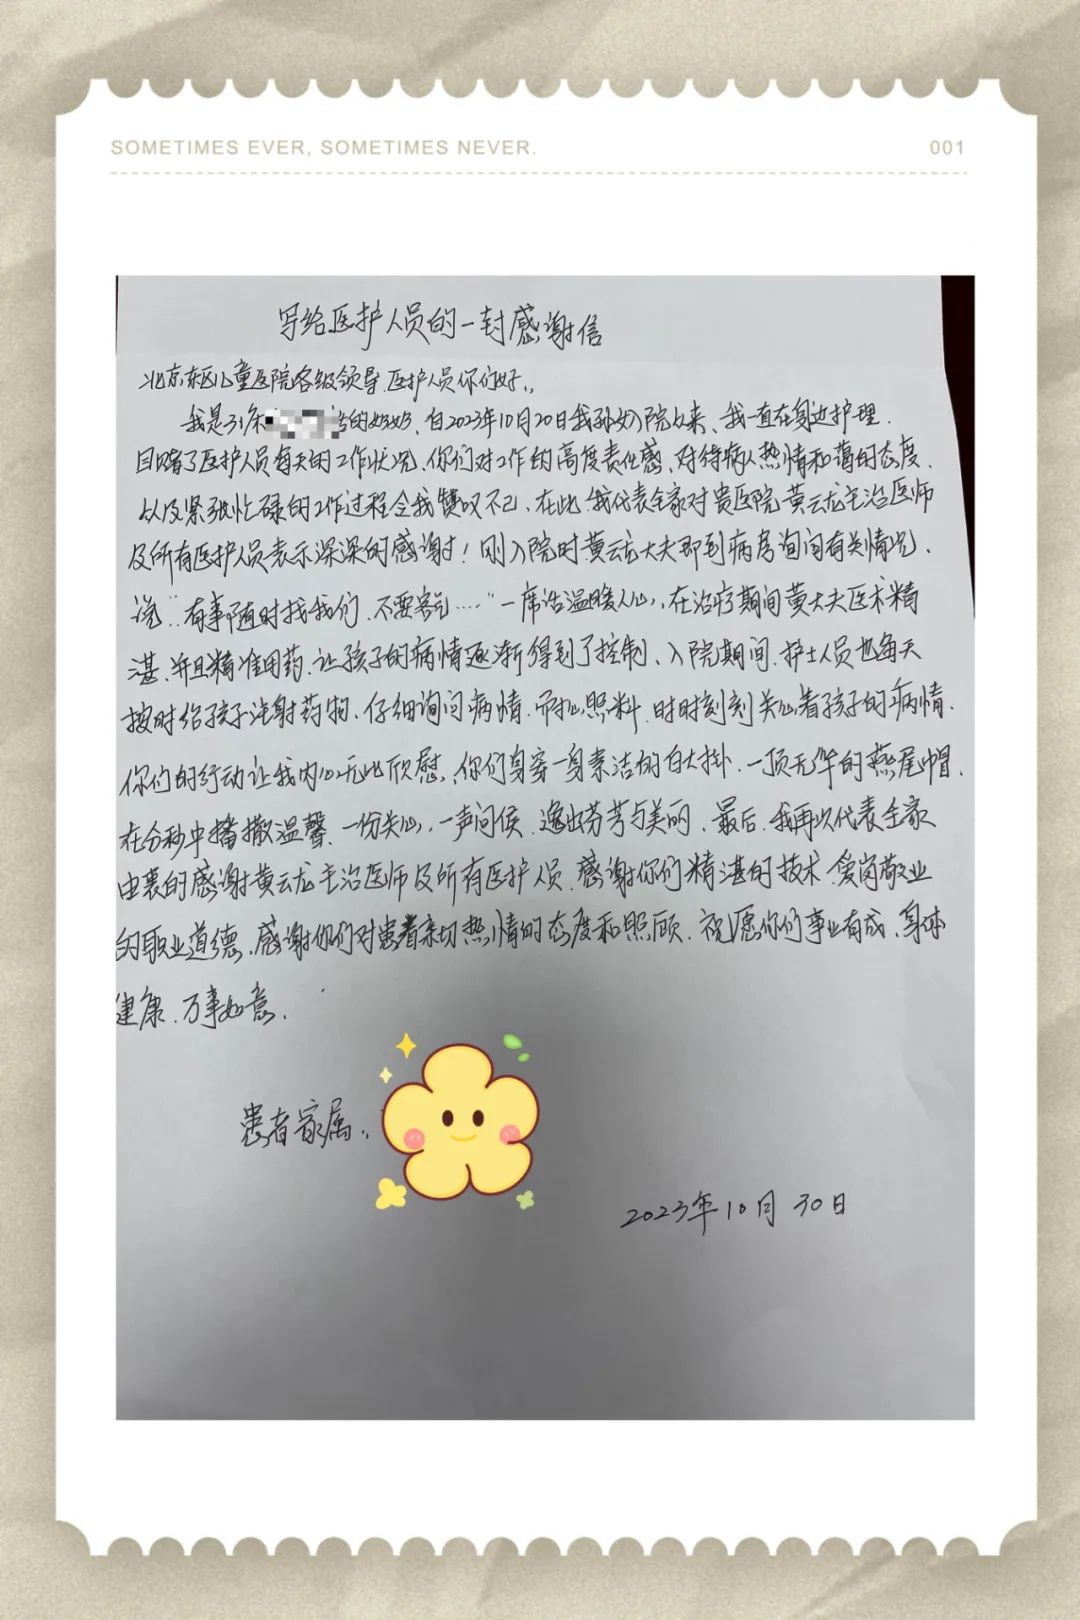 SOMETIMES EVER, SOMETIMES NEVER.
001
写给医护人员的一封感谢信
北京东区儿童医院各级领导.医护人员你们好.。
我是31床的奶奶、自2023年10月20日我孙女入院以来、我一直在身边护理.
目睹了医护人员每天的工作状况、你们对工作的高度责任感、对待病人热情和蔼的态度、
以及紧张忙碌的工作过程令我赞叹不已、在此、我代表全家对贵医院黄云龙主治医师
及所有医护人员表示深深的感谢!刚入院时黄云龙大夫即到病房询问有关情况、
说“有事随时找我们、不要客气……”一席话温暖人心、在治疗期间黄大夫医术精
湛、并且精准用药、让孩子的病情逐渐得到了控制、入院期间、护士人员也每天
按时给孩子注射药物、仔细询问病情、而心照料、时时刻刻关心着孩子的病情.
你们的行动让我内心无比欣慰、你们身穿一身素洁的白大掛、一顶无华的燕尾帽.
在分秒中播撒温馨、一份关心、一声问侯、逸出芬芳与美丽、最后、我再次代表全家
由衷的感谢黄云龙主治医师及所有医护人员、感谢你们精湛的技术、爱岗敬业
的职业道德、感谢你们对患者亲切热情的态度和照顾、祝愿你们事业有成、身体
健康、万事如意.
患者家属:
2023年10月30日